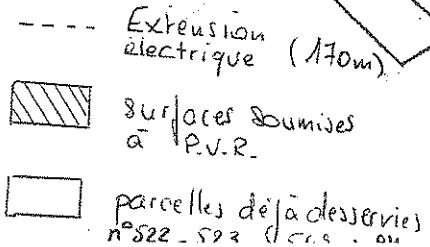 Extension
électrique (170m)
surfaces soumises
à P.V.R.
parcelles déjà desservies
n°522 - 523